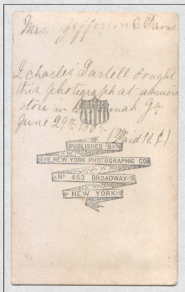 Mrs Jefferson C. Davis
I Charlie Fastell bought
this photograph at a
store in Savannah Ga
June 29th
(Paid
PUBLISHED BY
THE NEW YORK PHOTOGRAPHIC CO.
No 453 BROADWAY
NEW YORK